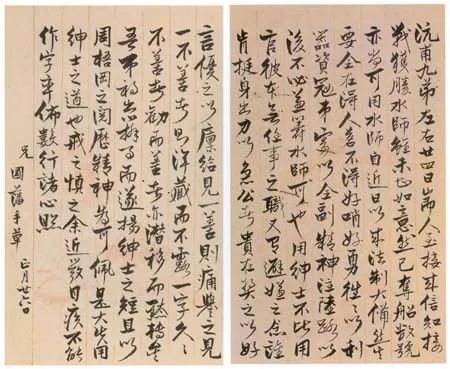 沅甫九弟左右廿四日專人至接來信知接
戰獲勝水師雖未甚如意然已奪船數號
亦尚可用水師自近日以來法制大備然其
要全在得人若不得好哨好勇往往以利
器資寇弟處以全副精神注陸路以
後不必兼籌水師可也用紳士不比用
官彼本無任事之職又有避嫌之念誰
肯挺身出力以急公者貴在獎之以好
言優之以廩給見一善則痛譽之見
一不善者則渾藏而不露一字久久
不善者勸而善者亦潛移而默轉矣
吾弟初出辦事而遂揚紳士之短且以
周梧岡之閱歷精神為可佩是大失用
紳士之道也戒之慎之余近發目疾不能
作字率佈數行諸心照
兄 國藩手草 正月廿八日